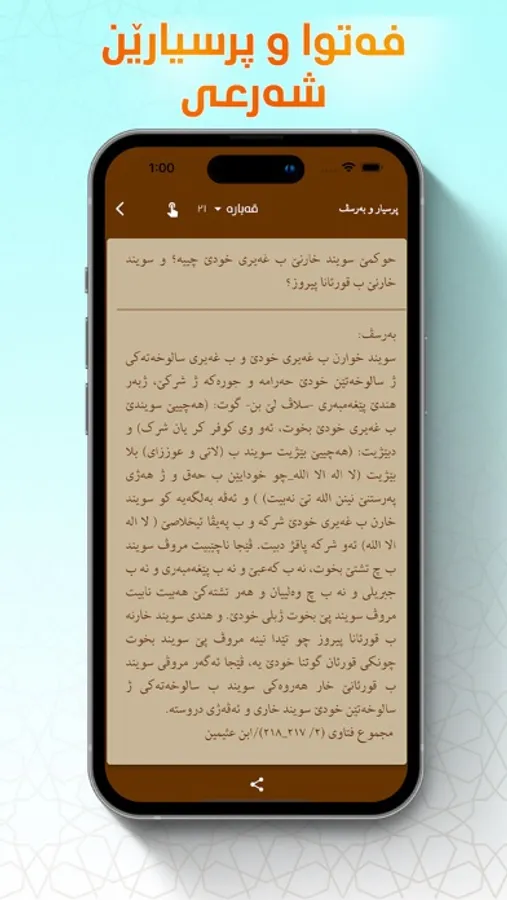 فەتوا و پرسیارێن
شەرعی
1:00
پرسیار و بەرسڤ
قەبارە
٢١
حوکمێ سویند خارنێ ب غەیری خودێ چییە؟ و سویند
خارنێ ب قورئانا پیروز؟
بەرسڤ:
سویند خوارن ب غەیری خودێ و ب غەیری سالوخەتەکی
ژ سالوخەتێن خودێ حەرامە و جورەکە ژ شرکێ، ژبەر
هندێ پێغەمبەری -سلاڤ لێ بن- گوت: (هەچیێ سویندێ
ب غەیری خودێ بخوت، ئەو وی کوفر کر یان شرک) و
دبێژیت: (هەچیێ بێژیت سویند ب (لاتی و عوززای) بلا
بێژیت (لا اله الا الله_چو خودایێن ب حەق و ژ هەژی
پەرستنێ نینن الله تێ نەبیت) ) و ئەڤە بەلگەیە کو سویند
خارن ب غەیری خودێ شرکە و ب پەیڤا ئیخلاصێ ( لا اله
الا الله) ئەو شرکە پاقژ دبیت. ڤێجا ناچێبیت مروڤ سویند
ب چ تشتێ بخوت، نە ب کەعبێ و نە ب پێغەمبەری و نە ب
جبریلی و نە ب چ وەلییان و هەر تشتەکێ هەبیت نابیت
مروڤ سویند پێ بخوت ژبلی خودێ. و هندی سویند خارنە
ب قورئانا پیروز چو تێدا نینە مروڤ پێ سویند بخوت
چونکی قورئان گوتنا خودێ یە، ڤێجا ئەگەر مروڤی سویند
ب قورئانێ خار هەروەکی سویند ب سالوخەتەکی ژ
سالوخەتێن خودێ سویند خاری و ئەڤەژی دروستە.
مجموع فتاوی (٢/ ٢١٧_٢١٨)/ابن عثیمین